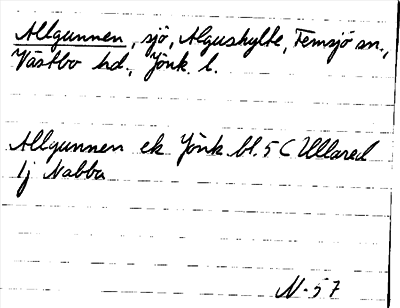 Allgunnen, sjö, Algushylte, Femsjö sn.,
Västbo hd., Jönk. l.
Allgunnen ek Jönk bl. 5 C Ullared
1j Nabba
N-57